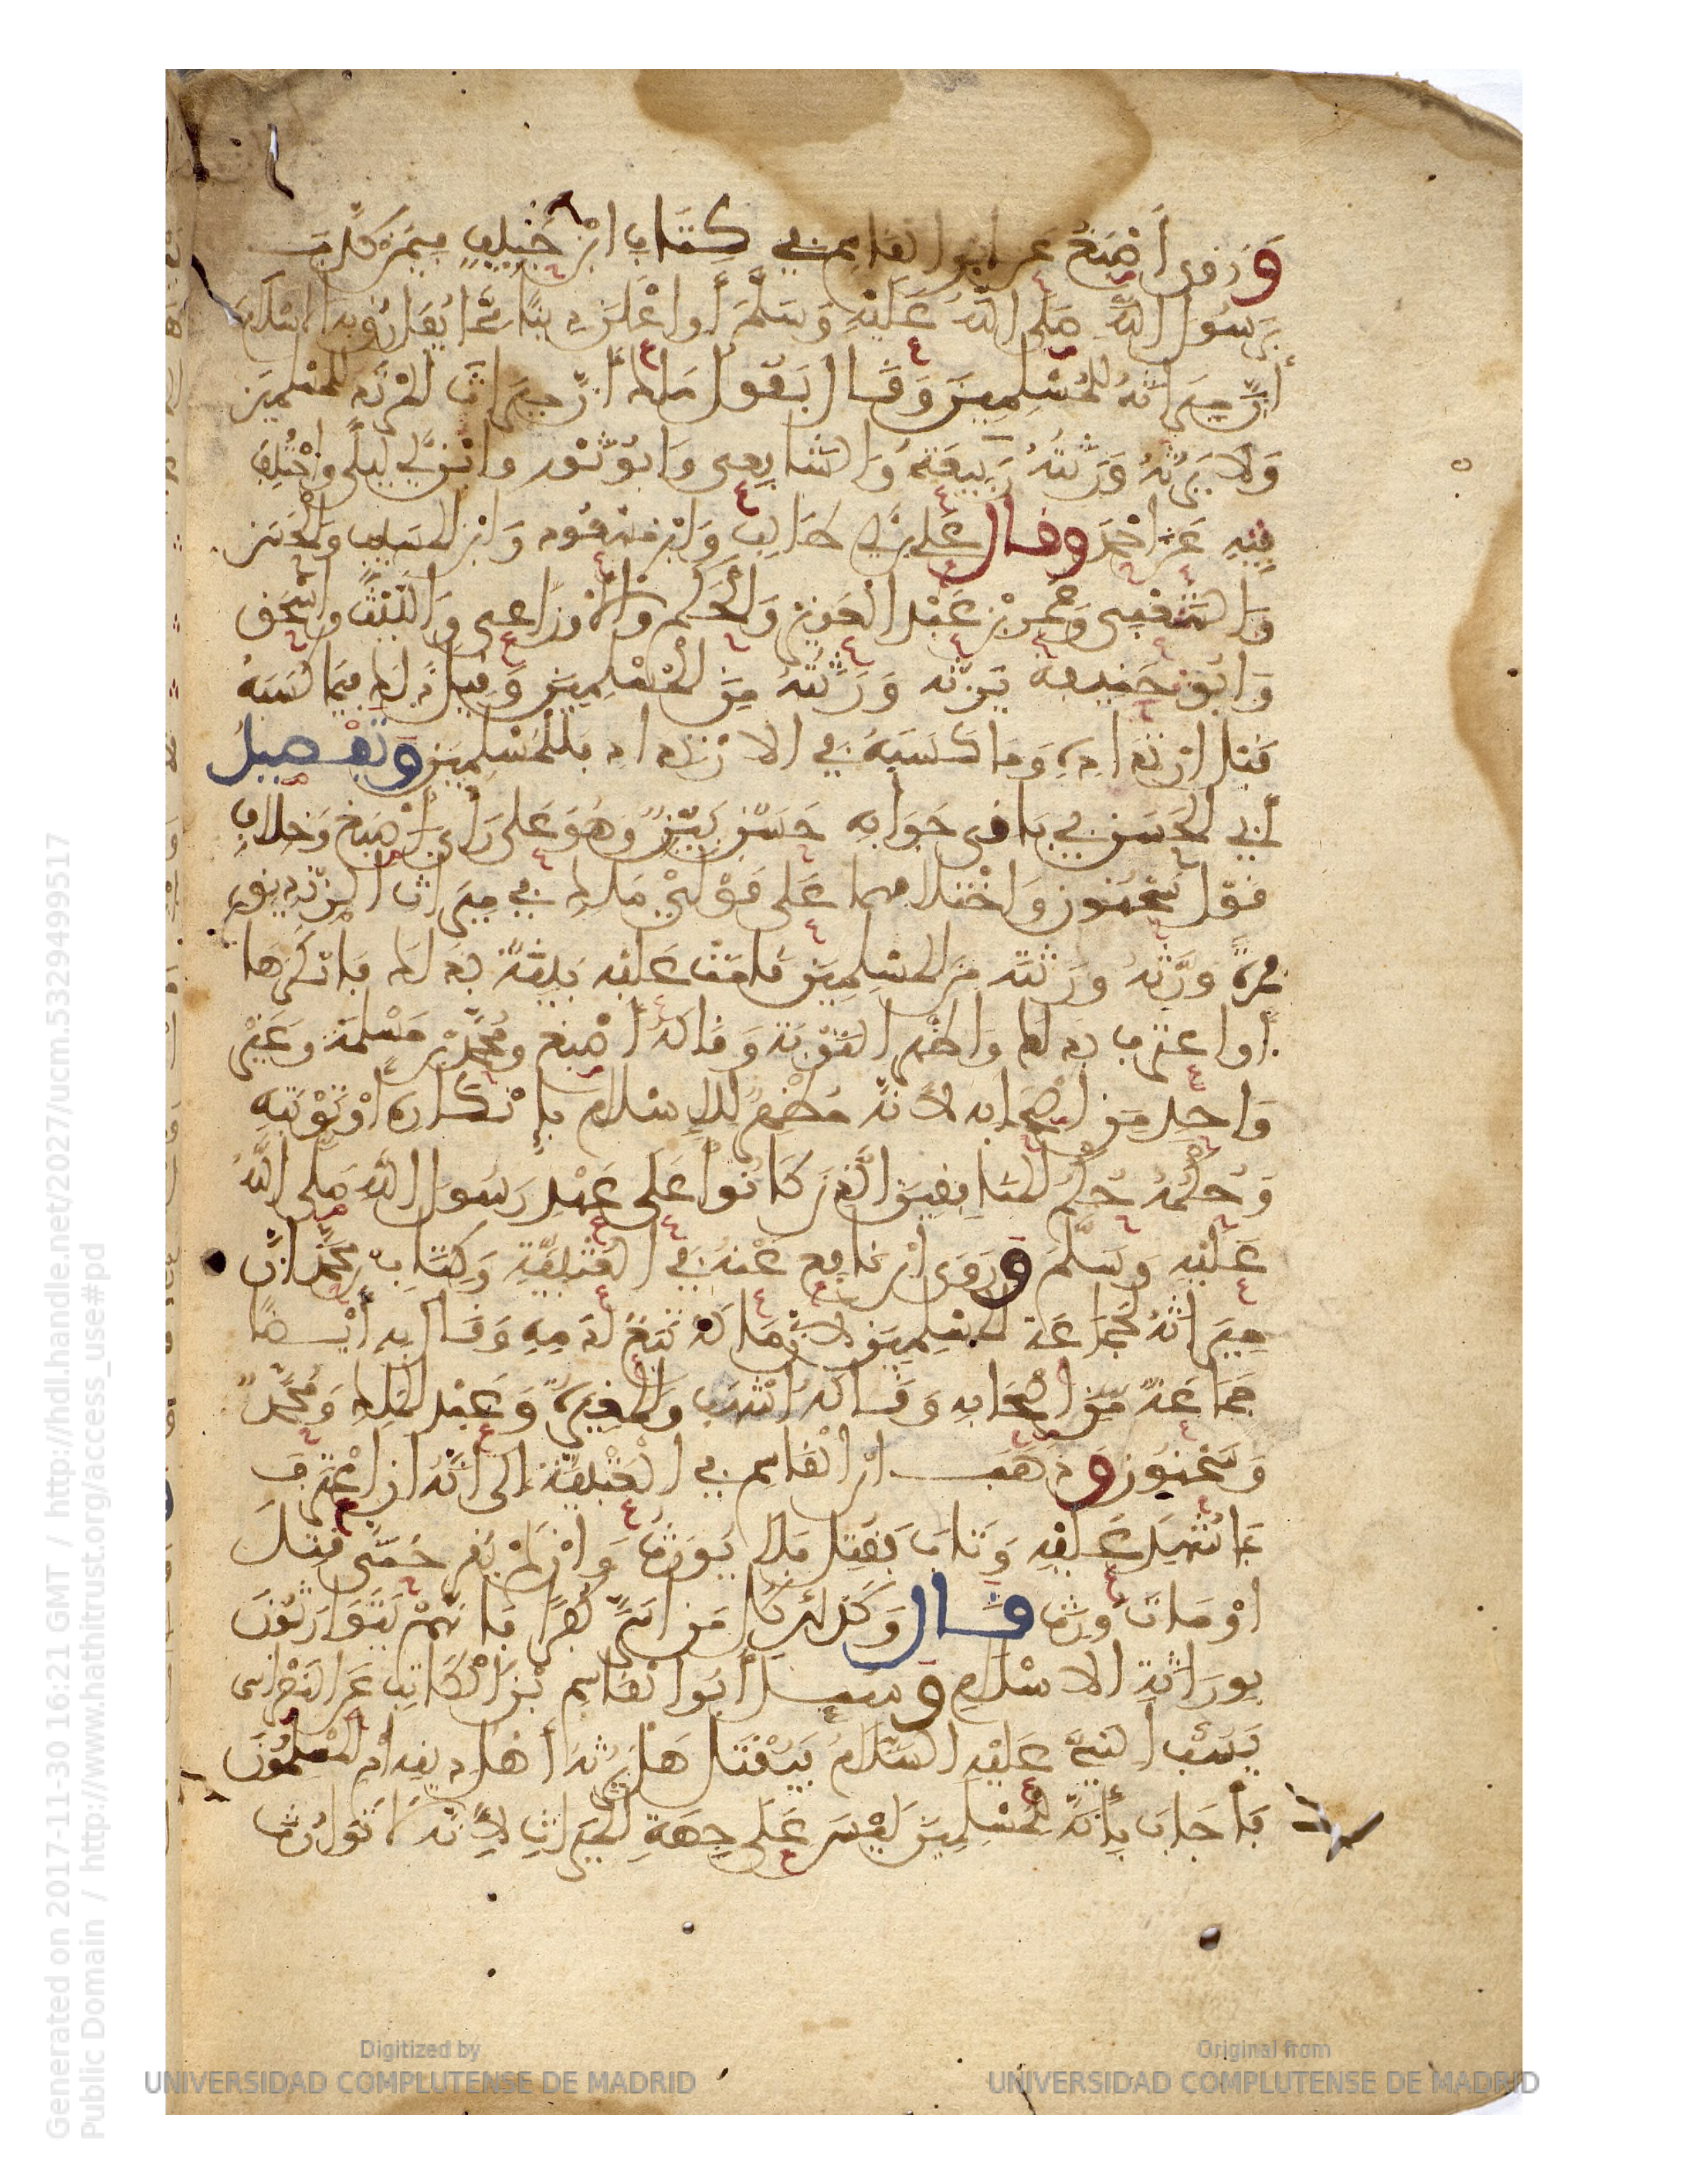 وَرَوى أَصْبَغُ عَن ابن القاسِم في كِتَاب ابْن حَبِيبٍ فِيمَن كَذَّبَ
بِرَسُول اللَّه صَلى اللَّهُ عَلَيْهِ وَسَلَّمَ أَو اعْلَن دِينًا مِمَّا يُفَارِقُ بِه الاسْلَامَ
أَنَّ مِيرَاثَهُ لِلْمُسْلِمِينَ وَقَال بقَوْل مَالِك أنَّ مِيرَاث المُرْتَد لِلمسْلمِينَ
وَلَا تَرِثُهُ وَرَثَتُهُ رَبِيعَةُ وَالشَّافِعِي وَابُو ثَوْر وابن أبي لَيْلَى واخْتُلِفَ
فِيهِ عَن احْمَد وقال عَلي بن أبي طَالِب وَابْن مَسْعُود وَابْن المسَيِب وَالْحَسَن
وَالشَّعْبِي وَعُمَر بْن عَبْد العَزيز وَالْحَكَم وَالاوْزَاعي وَاللَّيْثُ وإسْحَق
وَابُو حَنِيفَةَ يَرِثُه وَرَثَتُهُ مِنَ الْمُسْلِمِينَ وَقِيلَ ذَلِك فِيمَا كَسَبَهُ
قَبْل ارْتِدَادِهِ وَمَا كَسَبَهُ في الارْتِدَاد فَلِلْمُسْلِمِينَ وَتَفْصِيلُ
أَبِي الحَسَن في بَاقي جَوَابِه حَسَنٌ بَيِّنٌ وَهُوَ عَلى رَأي أَصْبَغ وَخِلَاف
قَوْل سُحْنُون وَاخْتِلَافهما عَلى قَوْلَيْ مَالِك في مِيرَاث الزِّنْدِيق
مرةً وَرَّثَهُ وَرَثَتَه مِن المسْلِمِينَ قَامَتْ عَلَيْه بَيِّنَةٌ بِذَلك فَانْكَرَهَا
أو اعتَرف بِذَلك وَاظْهَر التَوْبَةَ وَقَالَهُ أَصْبَغ ومُحَمَّدُ بْن مَسْلَمَة وَغَيْرُ
وَاحِد مِن اصْحَابِه لأَنَّهُ مُظْهِرٌ لِلإِسْلَام بإِنْكَارِهِ أوْ تَوْبَتِهِ
وَحُكْمُهُ حُكْمُ المُنَافِقِينَ الَّذِينَ كَانُوا عَلى عَهْدِ رَسُول اللَّه صَلى اللَّهُ
عَلَيْه وَسَلَّمَ وَرَوَى ابْن نَافِع عَنْهُ في الْعُتْبِيَّة وَكِتَاب مُحَمَّد أنَّ
مِيرَاثَهُ لجَمَاعَة المسْلِمِينَ لأنَّ مَالَهُ تَبَعٌ لِدَمِهِ وَقَال بِه أيْضًا
جَمَاعَةٌ مِن أصْحَابِه وَقَالَهُ أشْهَب وَالمُغِيرَةُ وَعَبْدُ المَلِك وَمُحَمَّدٌ
وَسُحْنُون وَذَهَب ابْن القَاسِم في الْعُتْبِيَّة إلى أنَّهُ ان اعْتَرَفَ
بمَا شُهِدَ عَلَيْه وَتَابَ فَقُتِل فَلا يُورَثُ وَانْ لَمْ يُقِر حَتَّى قُتِلَ
اوْ مَاتَ وُرِثَ قَال وَكَذلِكَ كُل مَن أسَرَّ كُفْرًا فَانَّهُمْ يَتَوَارَثُونَ
بِورَاثَةِ الاسْلَامِ وَسُئِل أَبُو القَاسِم بْن الكَاتِب عَن النَّصْرَاني
يَسُبُّ النَّبِيَّ عَلَيْه السَّلَامُ فَيُقْتَل هَلْ يَرِثُهُ أهْلُ دِينِهِ أم المُسْلِمُونَ
فَأَجَابَ بِأَنَّهُ لِلْمُسْلِمِينَ لَيْسَ عَلَى جِهَةِ الْمِيرَاثِ لأَنَّهُ لَا تَوَارُثَ
Generated on 2017-11-30 16:21 GMT / http://hdl.handle.net/2027/ucm.5329499517
Public Domain / http://www.hathitrust.org/access_use#pd
Digitized by
UNIVERSIDAD COMPLUTENSE DE MADRID
Original from
UNIVERSIDAD COMPLUTENSE DE MADRID